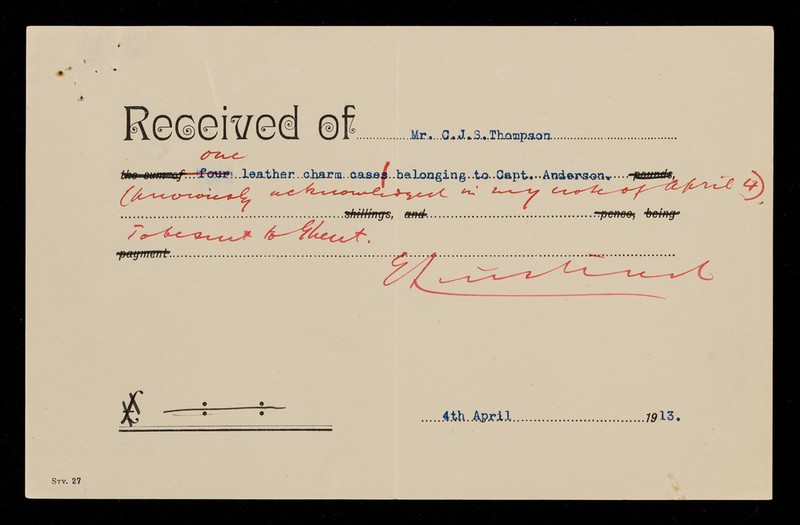 Received of Mr. C.J.S.Thompson
one
the sum of four leather charm cases belonging to Capt. Anderson. pounds,
(previously acknowledged in my note of April 4),
shillings, and pence, being
To be sent to Ghent.
payment
£ : :
4th April 1913.
Stv. 27